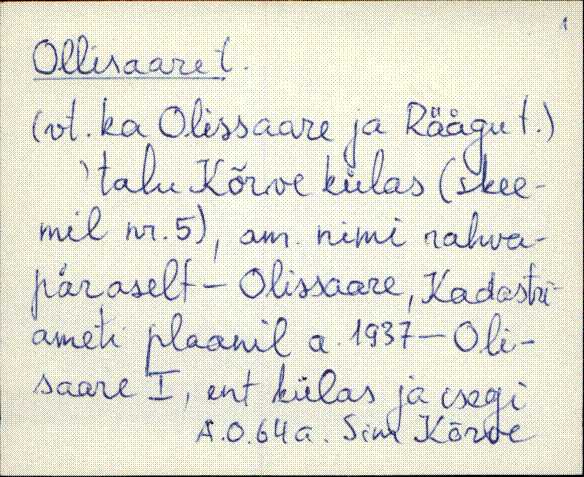 1
Ollisaare t.
(vt. ka Olissaare ja Räägu t.)
talu Kõrve külas (skee-
mil nr. 5), am. nimi rahva-
päraselt – Olissaare, Kadastri-
ameti plaanil a. 1937 – Oli-
saare I, ent külas ja isegi
A.O. 64 a. Sim Kõrve